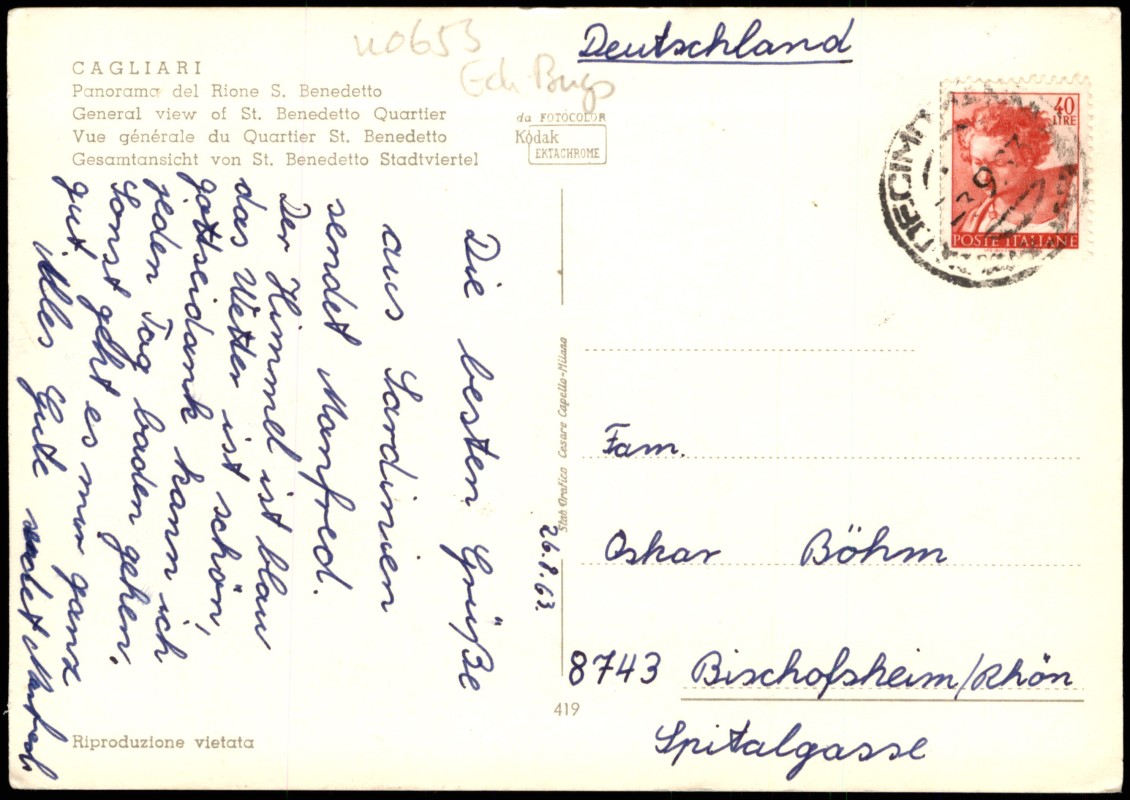 CAGLIARI
Panorama del Rione S. Benedetto
General view of St. Benedetto Quartier
Vue générale du Quartier St. Benedetto
Gesamtansicht von St. Benedetto Stadtviertel
u0653
da FOTOCOLOR
Kodak
EKTACHROME
Deutschland
40
LIRE
POSTE ITALIANE
Die besten Grüße
aus Sardinien
sendet Manfred.
Der Himmel ist blau
das Wetter ist schön,
gottseidank kann ich
jeden Tag baden gehen.
Sonst geht es mir ganz
gut. Alles Gute sendet Manfred
26.8.63.
Stab Grafico Cesare Capello-Milano
Fam.
Oskar Böhm
8743 Bischofsheim/Rhön
Spitalgasse
419
Riproduzione vietata